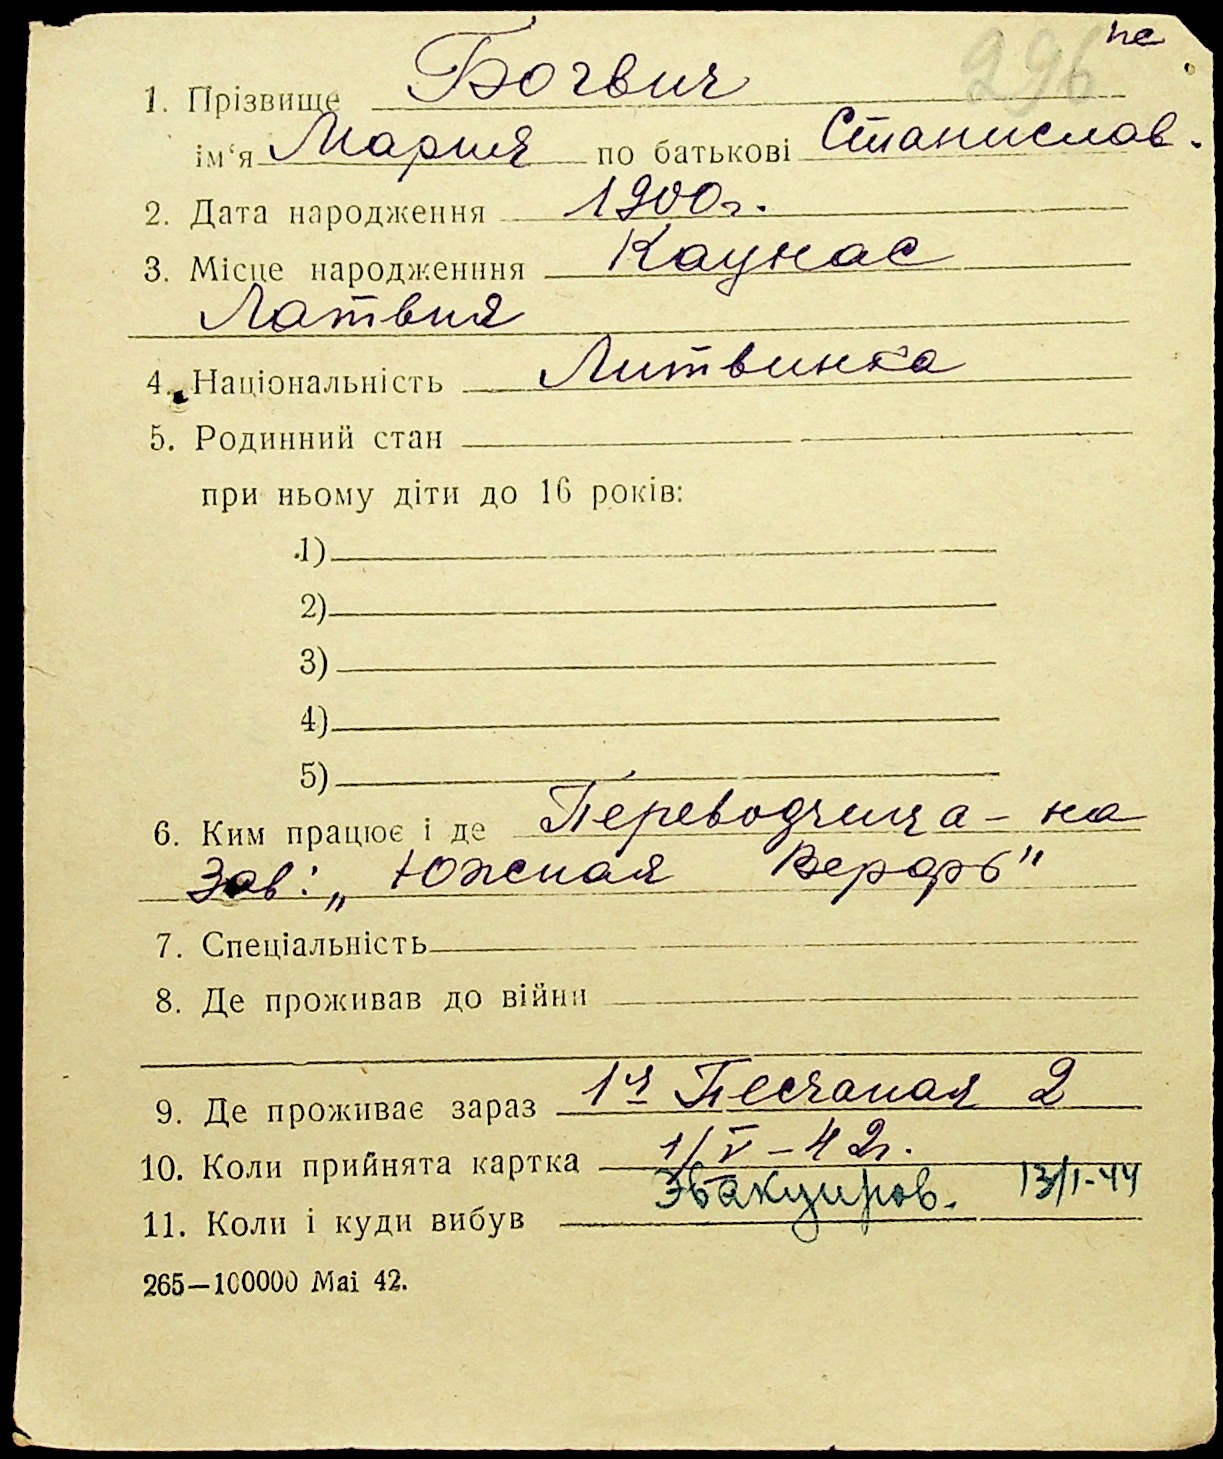 296 не
1. Прізвище Богвич
ім‘я Мария по батькові Станислав.
2. Дата народження 1900г.
3. Місце народженння Каунас
Латвия
4. Національність Литвинка
5. Родинний стан
при ньому діти до 16 років:
1)
2)
3)
4)
5)
6. Ким працює і де Переводчица – на
Зав: „Южная Верфь"
7. Спеціальність
8. Де проживав до війни
9. Де проживає зараз 1я Песчаная 2
10. Коли прийнята картка 1/V – 42г.
11. Коли і куди вибув Эвакуиров. 13/I-44
265—100000 Mai 42.